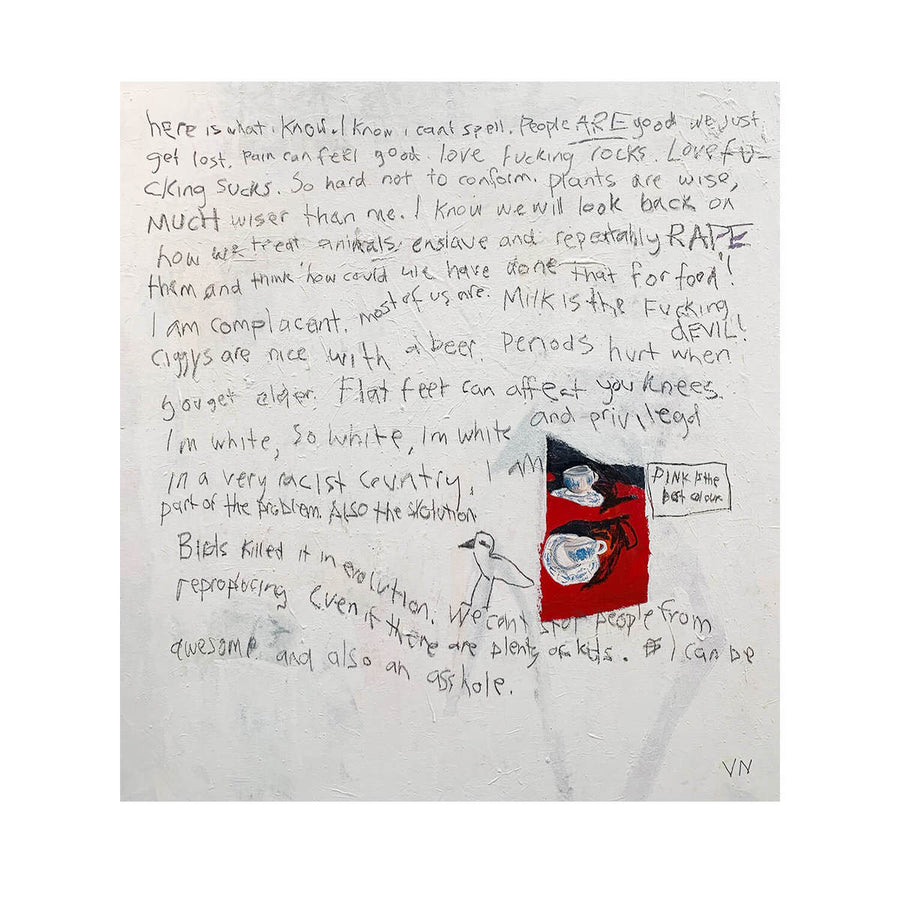 here is what i know. I know i cant spell. People ARE good we just
get lost. pain can feel good. love fucking rocks. Love fu-
cking sucks. So hard not to conform. plants are wise,
MUCH wiser than me. I know we will look back on
how we treat animals, enslave and repeatably RAPE
them and think 'how could we have done that for food'!
I am complacant. most of us are. Milk is the Fucking
dEVIL!
Ciggys are nice with a beer. Periods hurt when
you get older. Flat feet can affect you knees.
I'm white, so white, I'm white and privileged
in a very racist country. I am
part of the problem. Also the solution
PINK is the
best colour
Birds killed it in evolution. We can't stop people from
reproducing even if there are plenty of kids. I can be
awesome and also an asshole.
VN